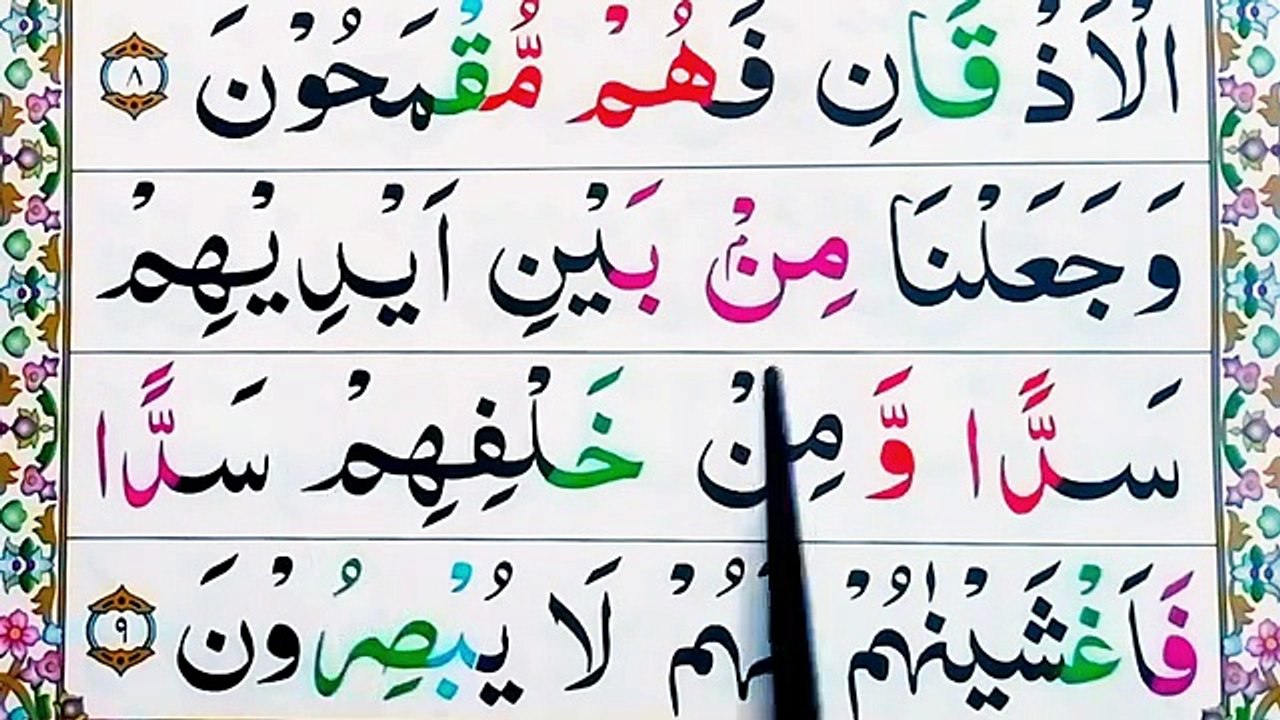 الْاَذْقَانِ فَهُمْ مُّقْمَحُوْنَ ٨
وَجَعَلْنَا مِنْۢ بَيْنِ اَيْدِيْهِمْ
سَدًّا وَّمِنْ خَلْفِهِمْ سَدًّا
فَاَغْشَيْنٰهُمْ فَهُمْ لَا يُبْصِرُوْنَ ٩